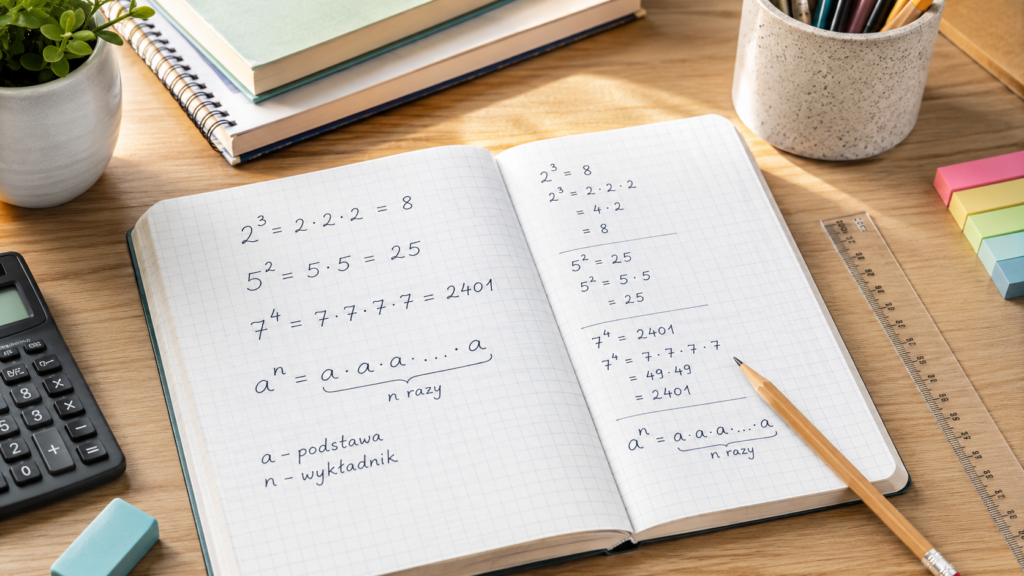 2³ = 2 · 2 · 2 = 8
5² = 5 · 5 = 25
7⁴ = 7 · 7 · 7 · 7 = 2401
aⁿ = a · a · a · .... · a
n razy
a – podstawa
n – wykładnik
2³ = 8
2³ = 2 · 2 · 2
= 4 · 2
= 8
5² = 25
5² = 5 · 5
= 25
7⁴ = 2401
7⁴ = 7 · 7 · 7 · 7
= 49 · 49
= 2401
aⁿ = a · a · a · .... · a
n razy